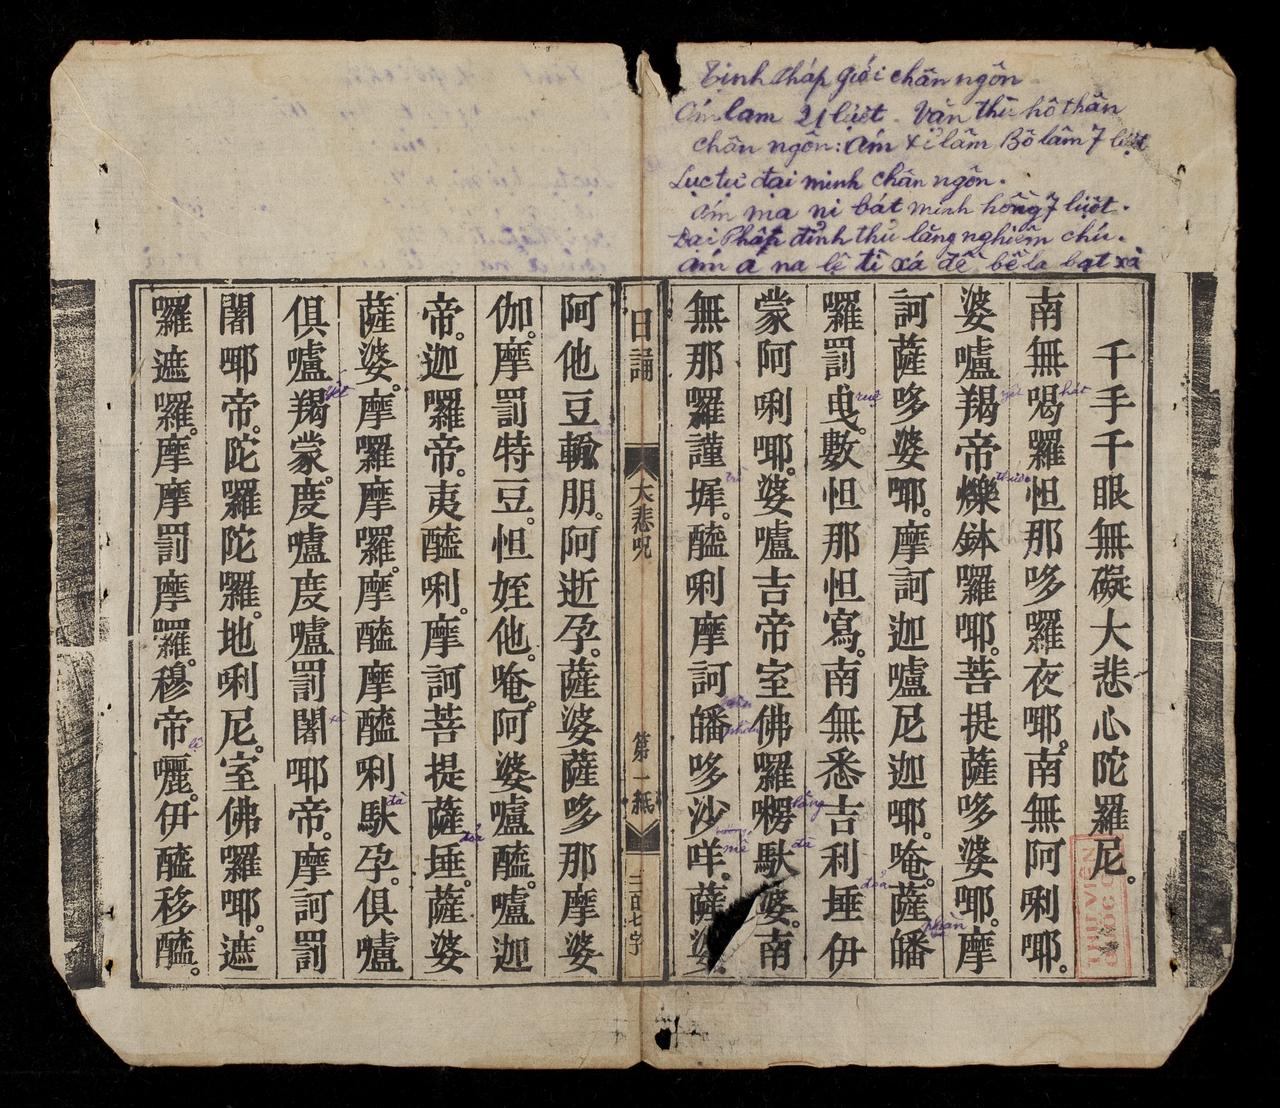 Tịnh Pháp giới chân ngôn
Án lam 21 lượt. Văn thù hộ thân
chân ngôn: Án xỉ lâm Bộ lâm 7 lượt
Lục tự đại minh chân ngôn.
Án ma ni bát minh hồng 7 lượt.
Đại Phật đỉnh thủ lăng nghiêm chú.
Án á na lệ tì xá đề bề la bạt xà
千手千眼無礙大悲心陀羅尼。
南無喝羅怛那哆羅夜耶。南無阿唎耶。
婆嚧羯帝爍鉢羅耶。菩提薩哆婆耶。摩
訶薩哆婆耶。摩訶迦嚧尼迦耶。唵。薩皤
囉罰曳。數怛那怛寫。南無悉吉利埵伊
蒙阿唎耶。婆嚧吉帝室佛囉楞馱婆。南
無那囉謹墀。醯唎摩訶皤哆沙咩。薩婆
日誦
大悲呪
第一紙
二百七字
阿他豆輸朋。阿逝孕。薩婆薩哆那摩婆
伽。摩罰特豆。怛姪他。唵。阿婆嚧醯。嚧迦
帝。迦囉帝。夷醯唎。摩訶菩提薩埵。薩婆
薩婆。摩囉摩囉。摩醯摩醯唎馱孕。俱嚧
俱嚧羯蒙。度嚧度嚧罰闍耶帝。摩訶罰
闍耶帝。陀囉陀囉。地唎尼。室佛囉耶。遮
囉遮囉。摩摩罰摩囉。穆帝囇。伊醯移醯。